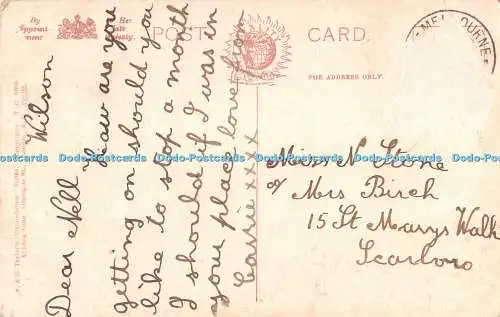 By
Appoint
ment
Her
Late
Majesty.
POST
CARD.
FOR ADDRESS ONLY.
MELBOURNE
Wilson
Dear Nell
Haw are you
getting on should you
like to stop a month
I should if I was in
your place love from
Carrie xxxx
Miss N Stone
c/o Mrs Birch
15 St Marys Walk
Scarboro
Dodo-Postcards Dodo-Postcards Dodo-Postcards Dodo-Postcards Dodo-Postcards Dodo-Postcards Dodo-Postcards